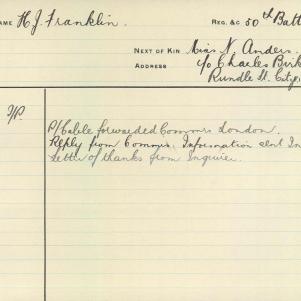 NAME H J Franklin. REG. &C 50th Batt
NEXT OF KIN Miss N. Anders
ADDRESS c/o Charles Birk
Rundle St. City
P/Cable forwarded Commrs London.
Reply from Commrs: Information sent In
Letter of thanks from Inquirer.